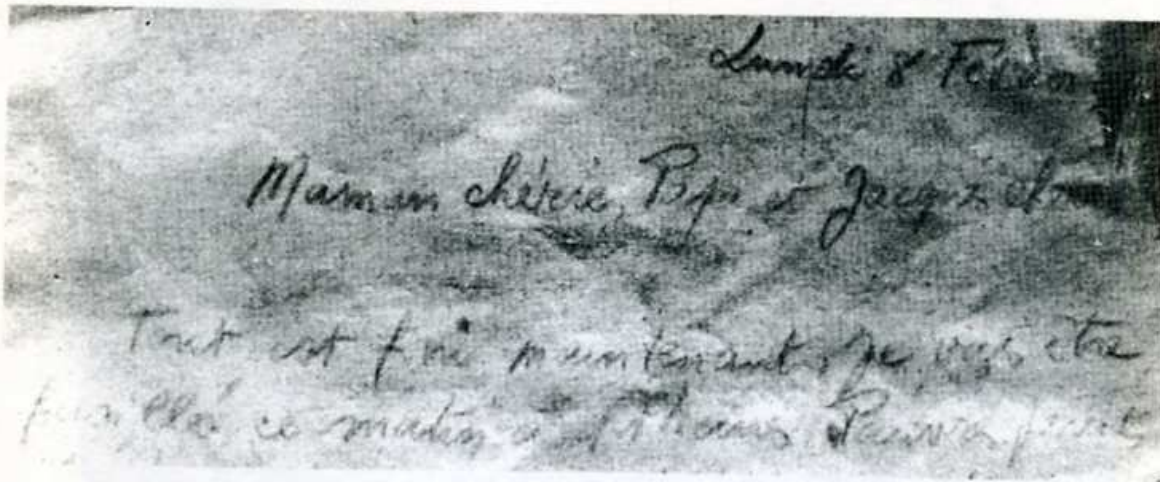 Lundi 8 Févr
Maman chérie, Papa et Jacques ch
Tout est fini maintenant. Je vais être
fusillé ce matin à 11 heures. Pauvres